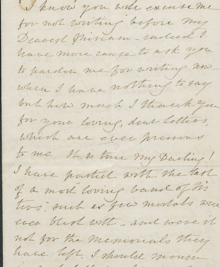 I know you will excuse me
for not writing before my
Dearest Miriam - indeed I
have more cause to ask you
to pardon me for writing now
when I have nothing to say
but how much I thank you
for your loving, dear letters,
which are ever precious
to me. It is true my Darling!
I have parted with the last
of a most loving band of
such as few mortals were
ever blest with - and were it
not for the memorials they
have left, I should mourn